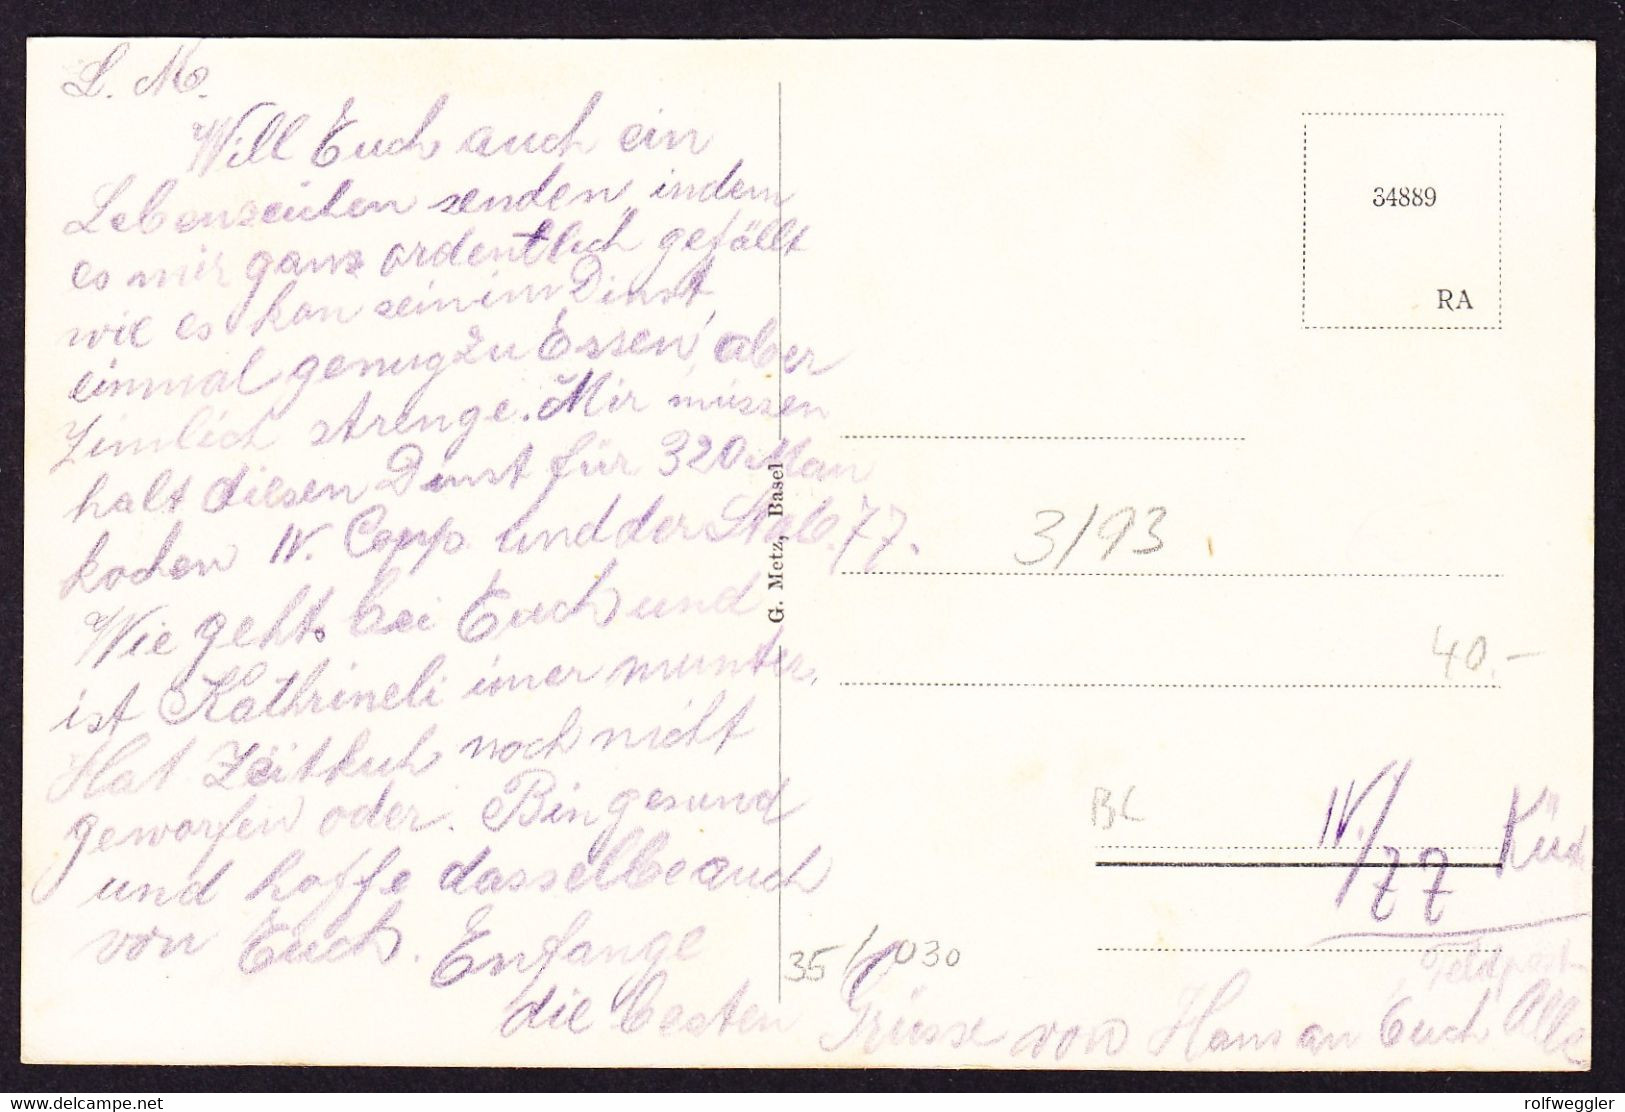 L. M.
Will Euch auch ein
Lebenzeichen senden, indem
es mir ganz ordentlich gefällt
wie es kan sein im Dinst,
einmal genug zu Essen, aber
Zimlich strenge. Mir müssen
halt diesen Dinst für 320 Man
kochen IV. Comp. und der Stab. 77.
Wie geht. bei Euch und
ist Kathrineli imer munter.
Hat Zeitkuh noch nicht
geworfen oder. Bin gesund
und hoffe dasselbe auch
von Euch. Enfange
die besten Grüsse von Hans an Euch Alle
G. Metz, Basel
34889
RA
3/93
40.-
BL
IV/77
Feldpost
35/1030
rolfweggler